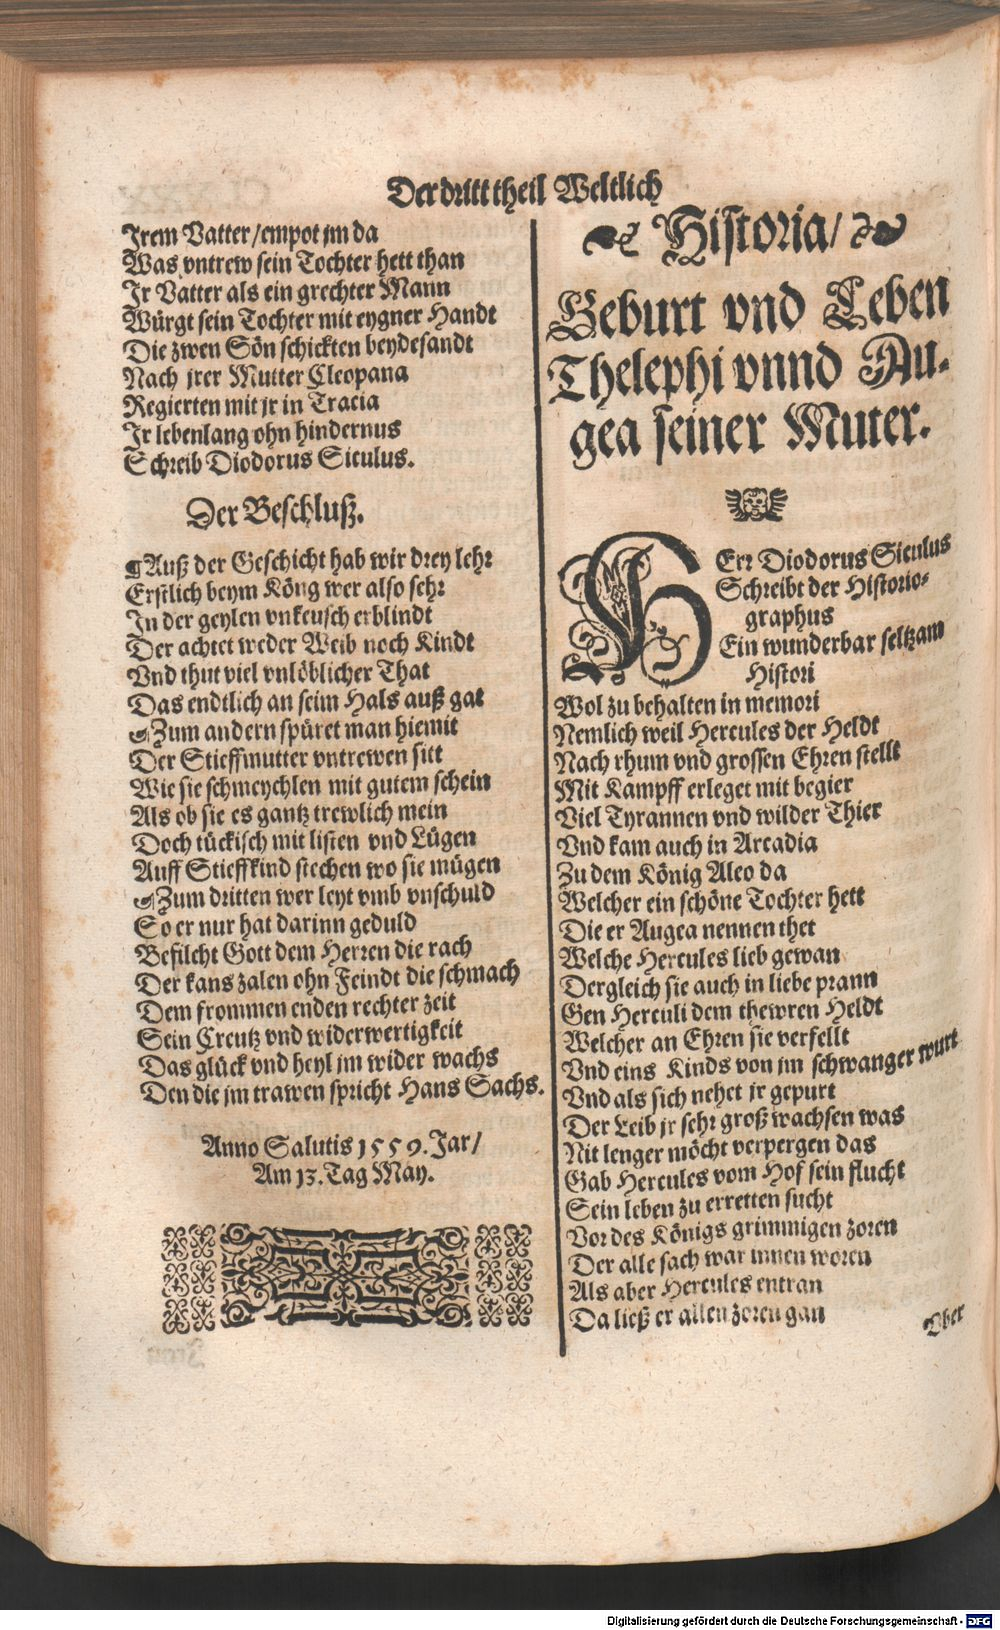 Der dritt theil Weltlich
Irem Vatter / empot jm da
Was vntrew sein Tochter hett than
Ir Vatter als ein grechter Mann
Würgt sein Tochter mit eygner Handt
Die zwen Sön schickten beydesandt
Nach jrer Mutter Cleopana
Regierten mit jr in Tracia
Ir lebenlang ohn hindernus
Schreib Diodorus Siculus.
Der Beschluß.
¶ Auß der Geschicht hab wir drey lehr
Erstlich beym Köng wer also sehr
In der geylen vnkeusch erblindt
Der achtet weder Weib noch Kindt
Vnd thut viel vnlöblicher That
Das endtlich an seim Hals auß gat
¶ Zum andern spüret man hiemit
Der Stieffmutter vntrewen sitt
Wie sie schmeychlen mit gutem schein
Als ob sie es gantz trewlich mein
Doch tückisch mit listen vnd Lügen
Auff Stieffkind stechen wo sie mügen
¶ Zum dritten wer leyt vmb vnschuld
So er nur hat darinn geduld
Befilcht Gott dem Herren die rach
Der kans zalen ohn Feindt die schmach
Dem frommen enden rechter zeit
Sein Creutz vnd widerwertigkeit
Das glück vnd heyl jm wider wachs
Den die jm trawen spricht Hans Sachs.
Anno Salutis 1559. Jar /
Am 13. Tag May.
Historia /
Geburt vnd Leben
Thelephi vnnd Au-
gea seiner Muter.
HErr Diodorus Siculus
Schreibt der Historio-
graphus
Ein wunderbar seltzam
Histori
Wol zu behalten in memori
Nemlich weil Hercules der Heldt
Nach rhum vnd grossen Ehren stellt
Mit Kampff erleget mit begier
Viel Tyrannen vnd wilder Thier
Vnd kam auch in Arcadia
Zu dem König Aleo da
Welcher ein schöne Tochter hett
Die er Augea nennen thet
Welche Hercules lieb gewan
Dergleich sie auch in liebe prann
Gen Herculi dem thewren Heldt
Welcher an Ehren sie verfellt
Vnd eins Kinds von jm schwanger wurt
Vnd als sich nehet jr gepurt
Der Leib jr sehr groß wachsen was
Nit lenger möcht verpergen das
Gab Hercules vom Hof sein flucht
Sein leben zu erretten sucht
Vor des Königs grimmigen zoren
Der alle sach war innen woren
Als aber Hercules entran
Da ließ er allen zoren gan
Vber
Digitalisierung gefördert durch die Deutsche Forschungsgemeinschaft - DFG